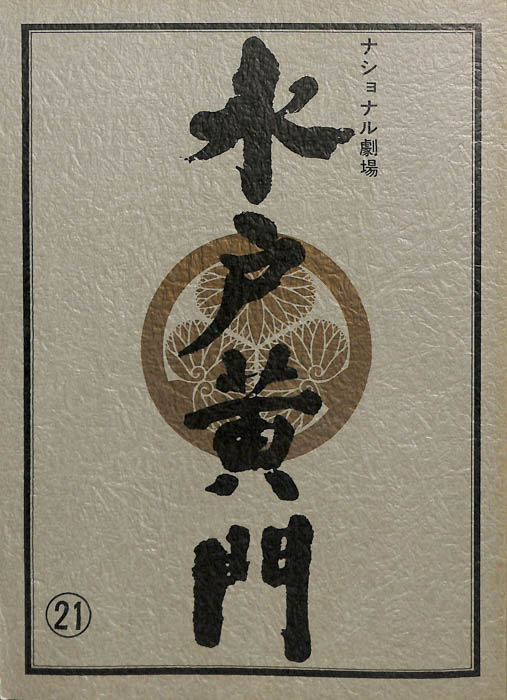 ナショナル劇場
水戸黄門
㉑